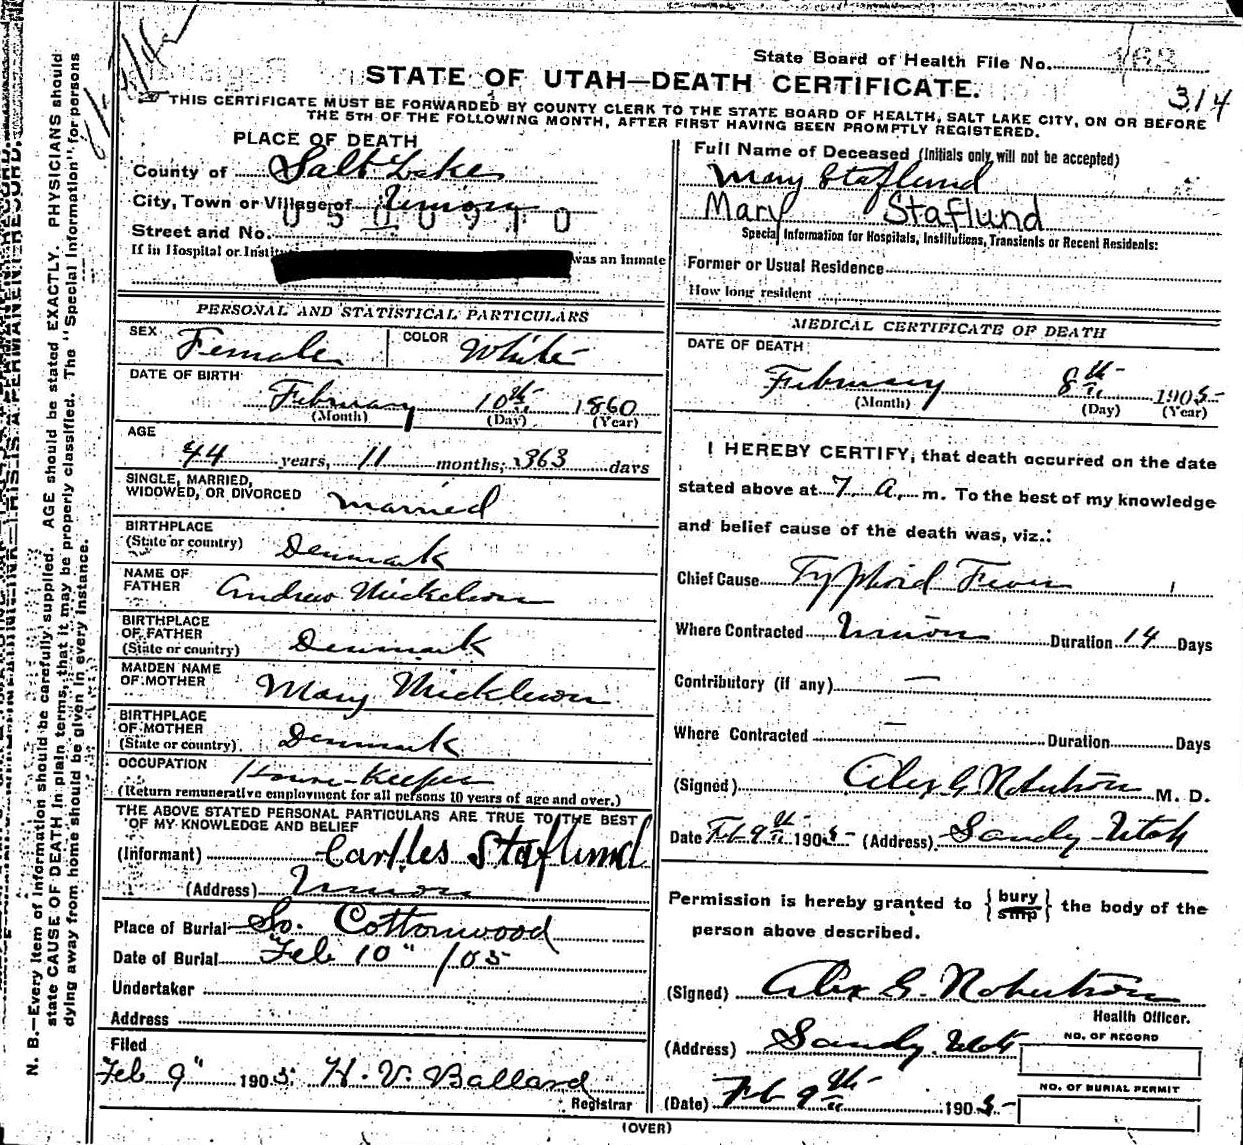 State Board of Health File No. 168
STATE OF UTAH—DEATH CERTIFICATE.
314
THIS CERTIFICATE MUST BE FORWARDED BY COUNTY CLERK TO THE STATE BOARD OF HEALTH, SALT LAKE CITY, ON OR BEFORE
THE 5TH OF THE FOLLOWING MONTH, AFTER FIRST HAVING BEEN PROMPTLY REGISTERED.
PLACE OF DEATH
County of Salt Lake
City, Town or Village of Union
0500910
Street and No.
If in Hospital or Instit was an Inmate
PERSONAL AND STATISTICAL PARTICULARS
SEX Female COLOR White
DATE OF BIRTH
February 10th 1860
(Month) (Day) (Year)
AGE
44 years, 11 months, 363 days
SINGLE, MARRIED,
WIDOWED, OR DIVORCED married
BIRTHPLACE
(State or country) Denmark
NAME OF
FATHER Andrew Mickelson
BIRTHPLACE
OF FATHER
(State or country) Denmark
MAIDEN NAME
OF MOTHER Mary
BIRTHPLACE
OF MOTHER
(State or country) Denmark
OCCUPATION House-Keeper
(Return remunerative employment for all persons 10 years of age and over.)
THE ABOVE STATED PERSONAL PARTICULARS ARE TRUE TO THE BEST
OF MY KNOWLEDGE AND BELIEF
(Informant) Carlles Staflund
(Address) Union
Place of Burial So. Cottonwood
Date of Burial Feb 10" /05
Undertaker
Address
Filed
Feb 9" 1905 H. V. Ballard
Registrar
Full Name of Deceased (Initials only will not be accepted)
Mary Staflund
Mary Staflund
Special Information for Hospitals, Institutions, Transients or Recent Residents:
Former or Usual Residence
How long resident
MEDICAL CERTIFICATE OF DEATH
DATE OF DEATH
February 8th 1905
(Month) (Day) (Year)
I HEREBY CERTIFY, that death occurred on the date
stated above at 7 a. m. To the best of my knowledge
and belief cause of the death was, viz.:
Chief Cause Typhoid Fever
Where Contracted Union Duration 14 Days
Contributory (if any) —
Where Contracted — Duration Days
(Signed) Alex G Robertson M. D.
Date Feb 9th 1905 (Address) Sandy Utah
Permission is hereby granted to {bury ship} the body of the
person above described.
(Signed) Alex G. Robertson
Health Officer.
(Address) Sandy. Utah
NO. OF RECORD
NO. OF BURIAL PERMIT
(Date) Feb 9th 1905
(OVER)
N. B.—Every item of information should be carefully supplied. AGE should be stated EXACTLY. PHYSICIANS should
state CAUSE OF DEATH in plain terms, that it may be properly classified. The "Special Information" for persons
dying away from home should be given in every instance.